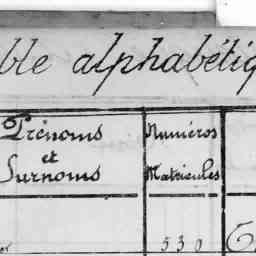 ble alphabétiq
Prénoms Numéros
et
Surnoms Matricules
530